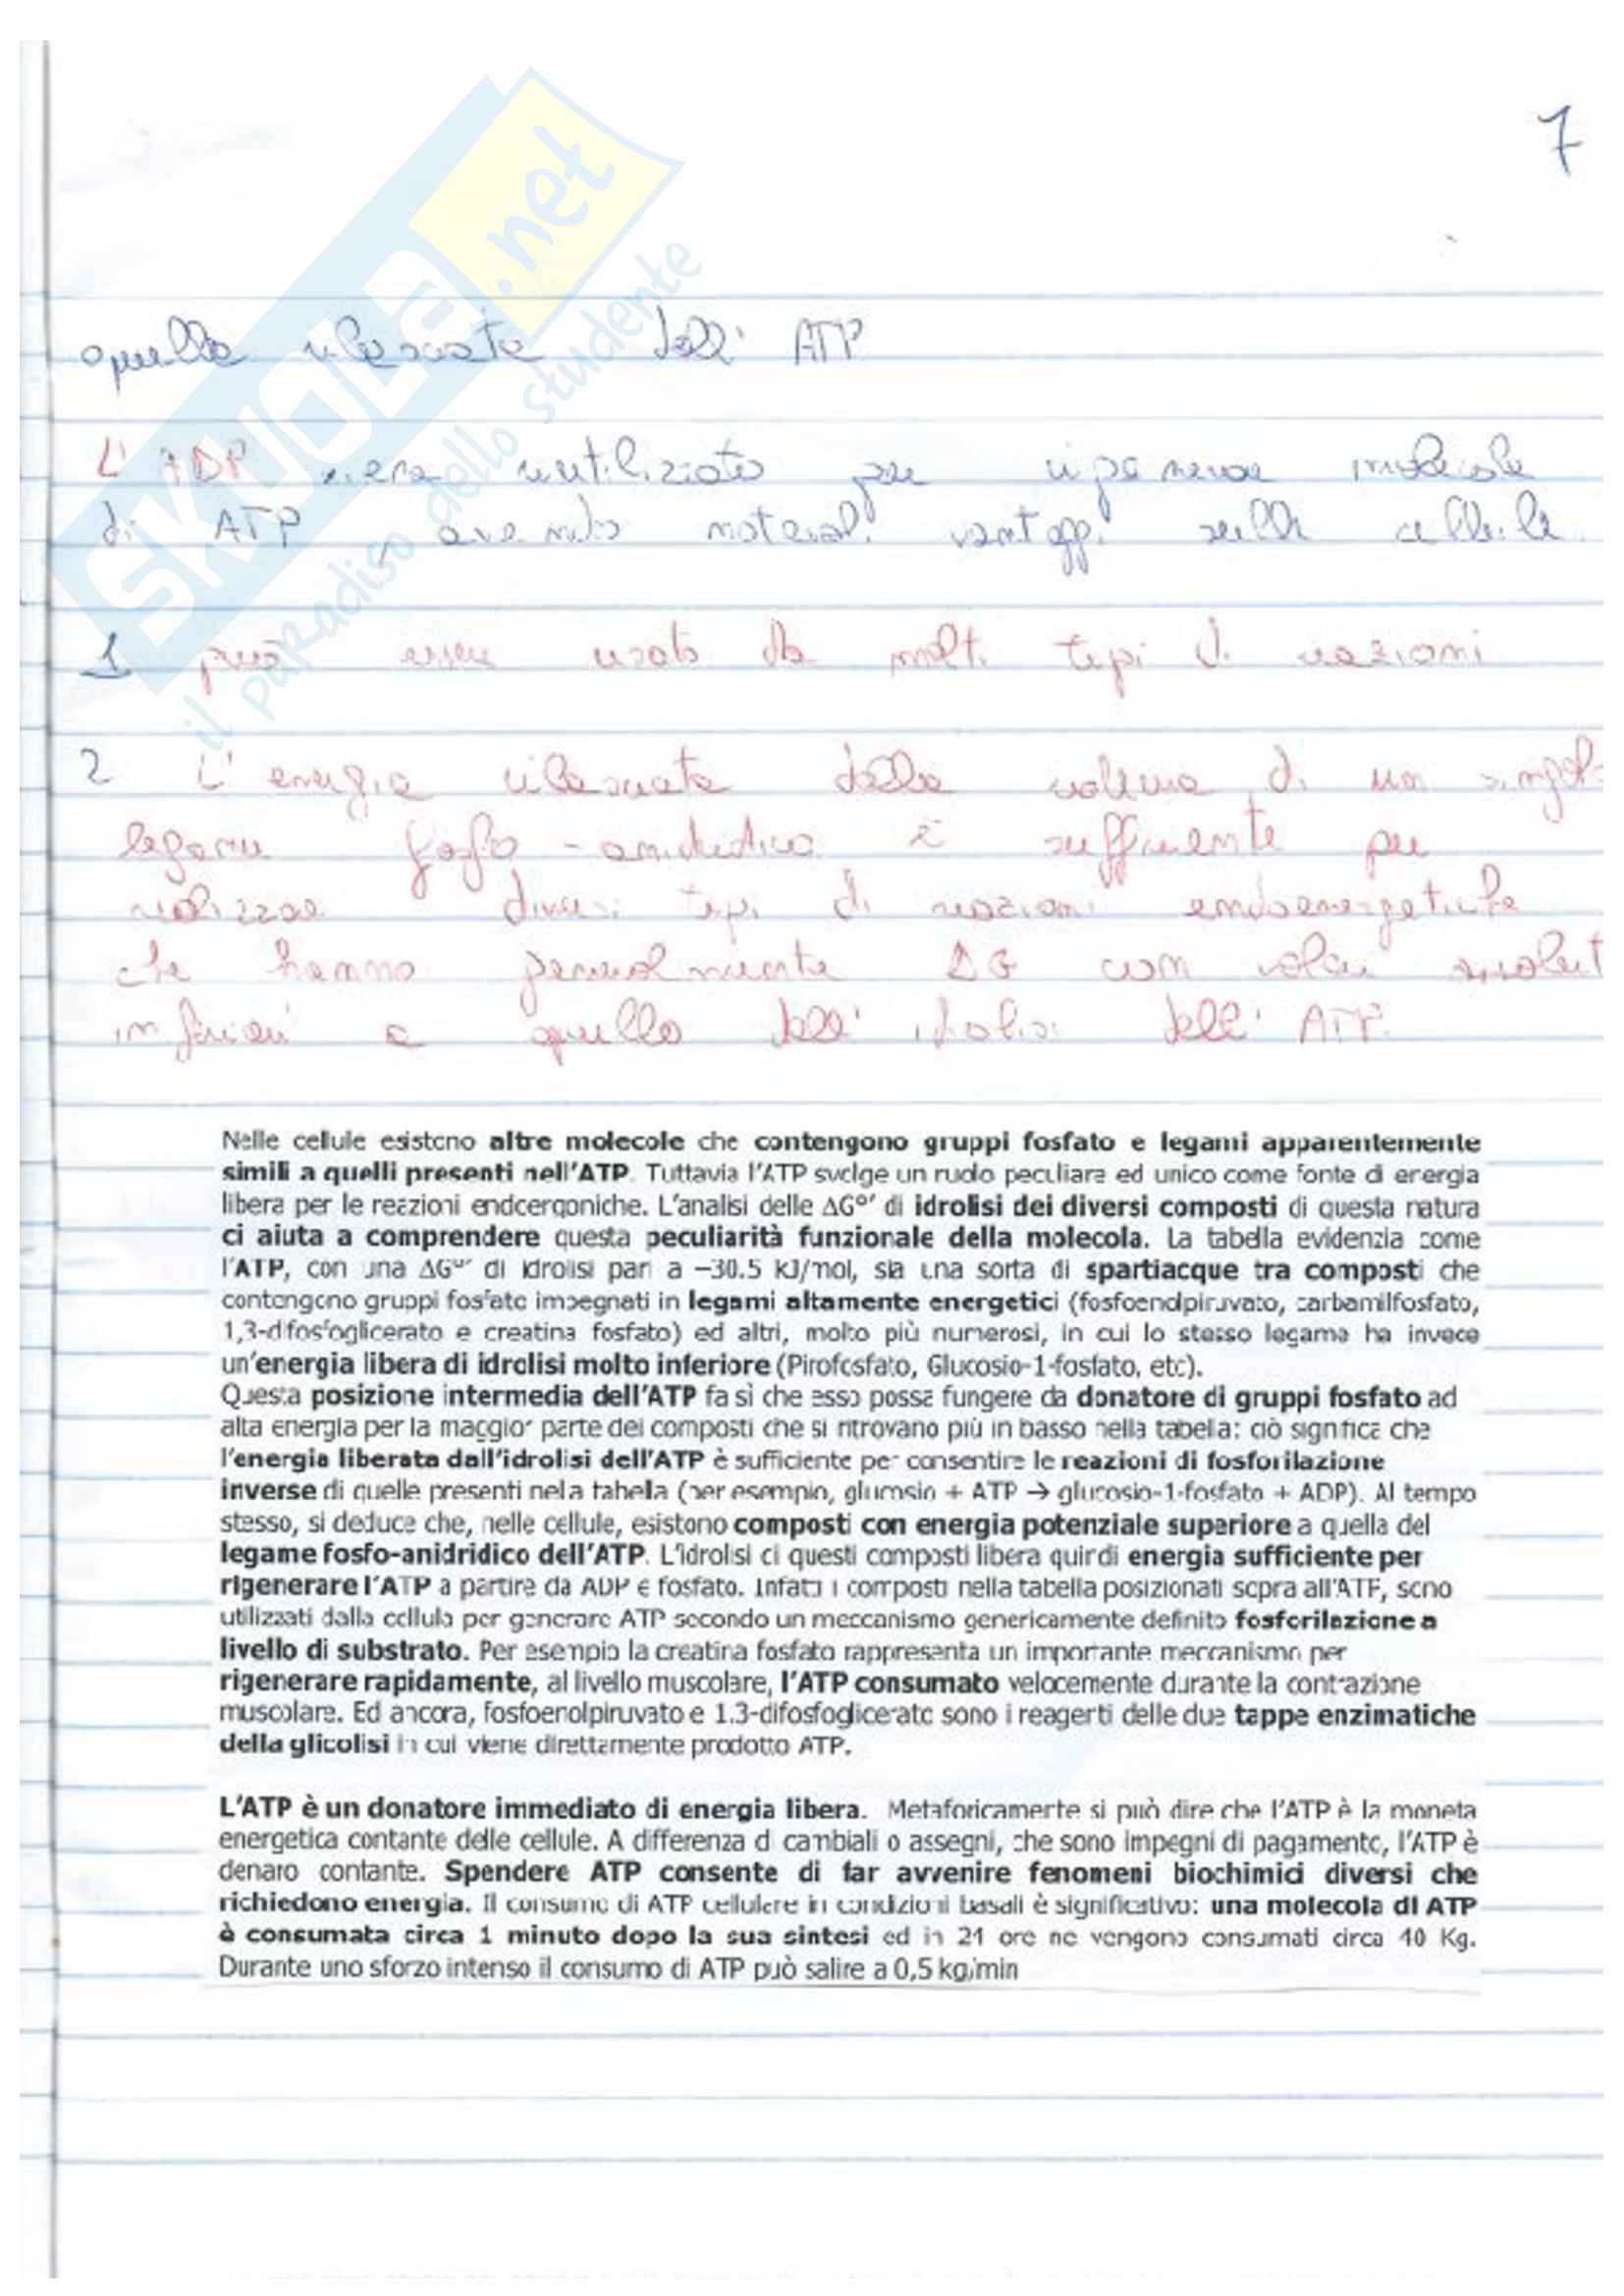 7
quella rilasciata dall' ATP
L' ADP viene riutilizzato per rigenerare molecole
di ATP, avendo notevoli vantaggi nelle cellule
1 può essere usato da molti tipi di reazioni
2 L' energia rilasciata dalla rottura di un singolo
legame fosfo-anidridico è sufficiente per
realizzare diversi tipi di reazioni endoenergetiche
che hanno generalmente ΔG con valori assoluti
inferiori a quello dell' idrolisi dell' ATP.
Nelle cellule esistono altre molecole che contengono gruppi fosfato e legami apparentemente
simili a quelli presenti nell'ATP. Tuttavia l'ATP svolge un ruolo peculiare ed unico come fonte di energia
libera per le reazioni endoergoniche. L'analisi delle ΔG°' di idrolisi dei diversi composti di questa natura
ci aiuta a comprendere questa peculiarità funzionale della molecola. La tabella evidenzia come
l'ATP, con una ΔG°' di idrolisi pari a –30.5 kJ/mol, sia una sorta di spartiacque tra composti che
contengono gruppi fosfato impegnati in legami altamente energetici (fosfoenolpiruvato, carbamilfosfato,
1,3-difosfoglicerato e creatina fosfato) ed altri, molto più numerosi, in cui lo stesso legame ha invece
un'energia libera di idrolisi molto inferiore (Pirofosfato, Glucosio-1-fosfato, etc).
Questa posizione intermedia dell'ATP fa sì che esso possa fungere da donatore di gruppi fosfato ad
alta energia per la maggior parte dei composti che si ritrovano più in basso nella tabella: ciò significa che
l'energia liberata dall'idrolisi dell'ATP è sufficiente per consentire le reazioni di fosforilazione
inverse di quelle presenti nella tabella (per esempio, glucosio + ATP → glucosio-1-fosfato + ADP). Al tempo
stesso, si deduce che, nelle cellule, esistono composti con energia potenziale superiore a quella del
legame fosfo-anidridico dell'ATP. L'idrolisi di questi composti libera quindi energia sufficiente per
rigenerare l'ATP a partire da ADP e fosfato. Infatti i composti nella tabella posizionati sopra all'ATP, sono
utilizzati dalla cellula per generare ATP secondo un meccanismo genericamente definito fosforilazione a
livello di substrato. Per esempio la creatina fosfato rappresenta un importante meccanismo per
rigenerare rapidamente, al livello muscolare, l'ATP consumato velocemente durante la contrazione
muscolare. Ed ancora, fosfoenolpiruvato e 1.3-difosfoglicerato sono i reagenti delle due tappe enzimatiche
della glicolisi in cui viene direttamente prodotto ATP.
L'ATP è un donatore immediato di energia libera. Metaforicamente si può dire che l'ATP è la moneta
energetica contante delle cellule. A differenza di cambiali o assegni, che sono impegni di pagamento, l'ATP è
denaro contante. Spendere ATP consente di far avvenire fenomeni biochimici diversi che
richiedono energia. Il consumo di ATP cellulare in condizioni basali è significativo: una molecola di ATP
è consumata circa 1 minuto dopo la sua sintesi ed in 24 ore ne vengono consumati circa 40 Kg.
Durante uno sforzo intenso il consumo di ATP può salire a 0,5 kg/min
SKUOLA.net
il paradiso dello studente